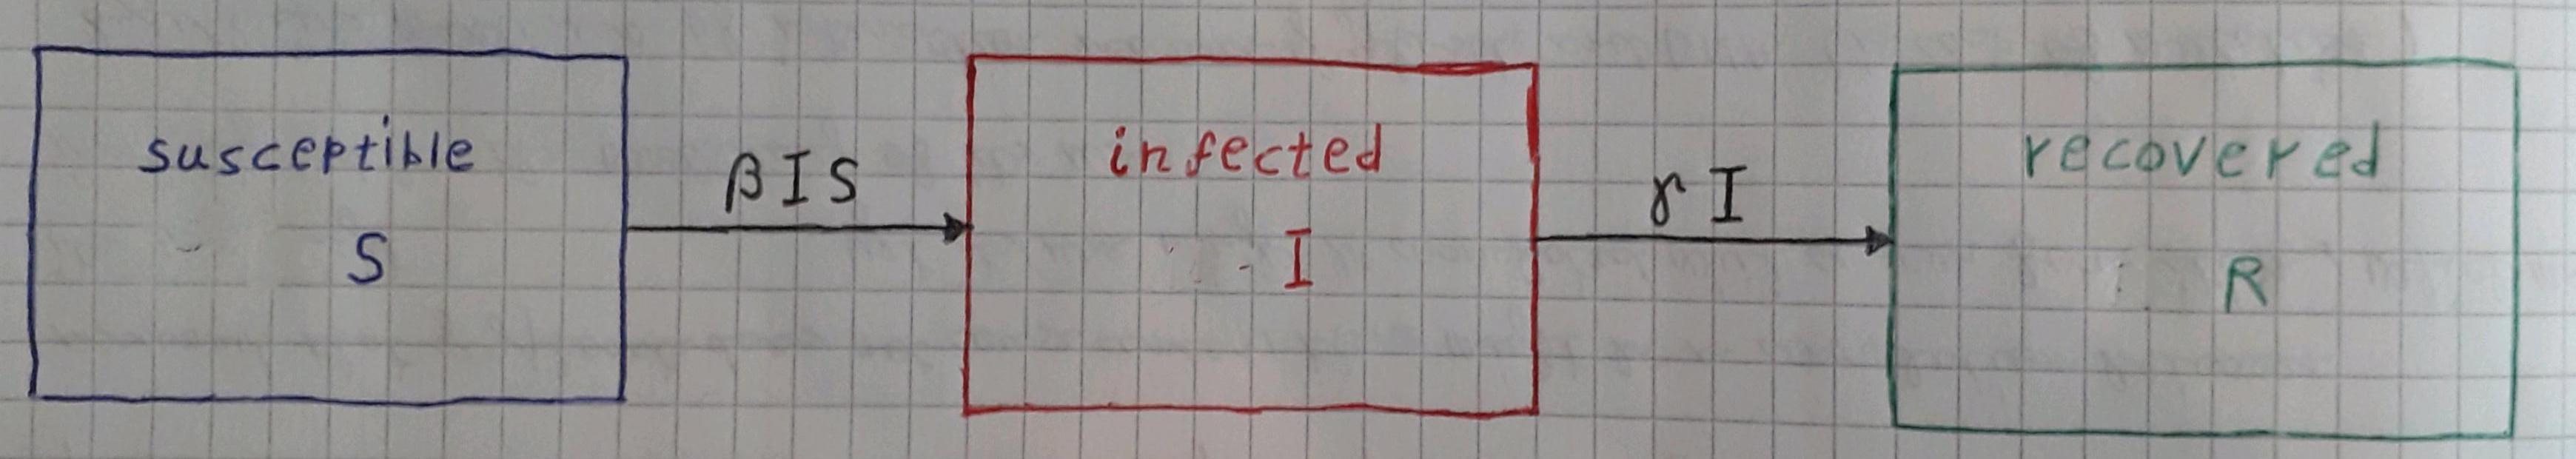 susceptible
S
βIS
infected
I
γI
recovered
R